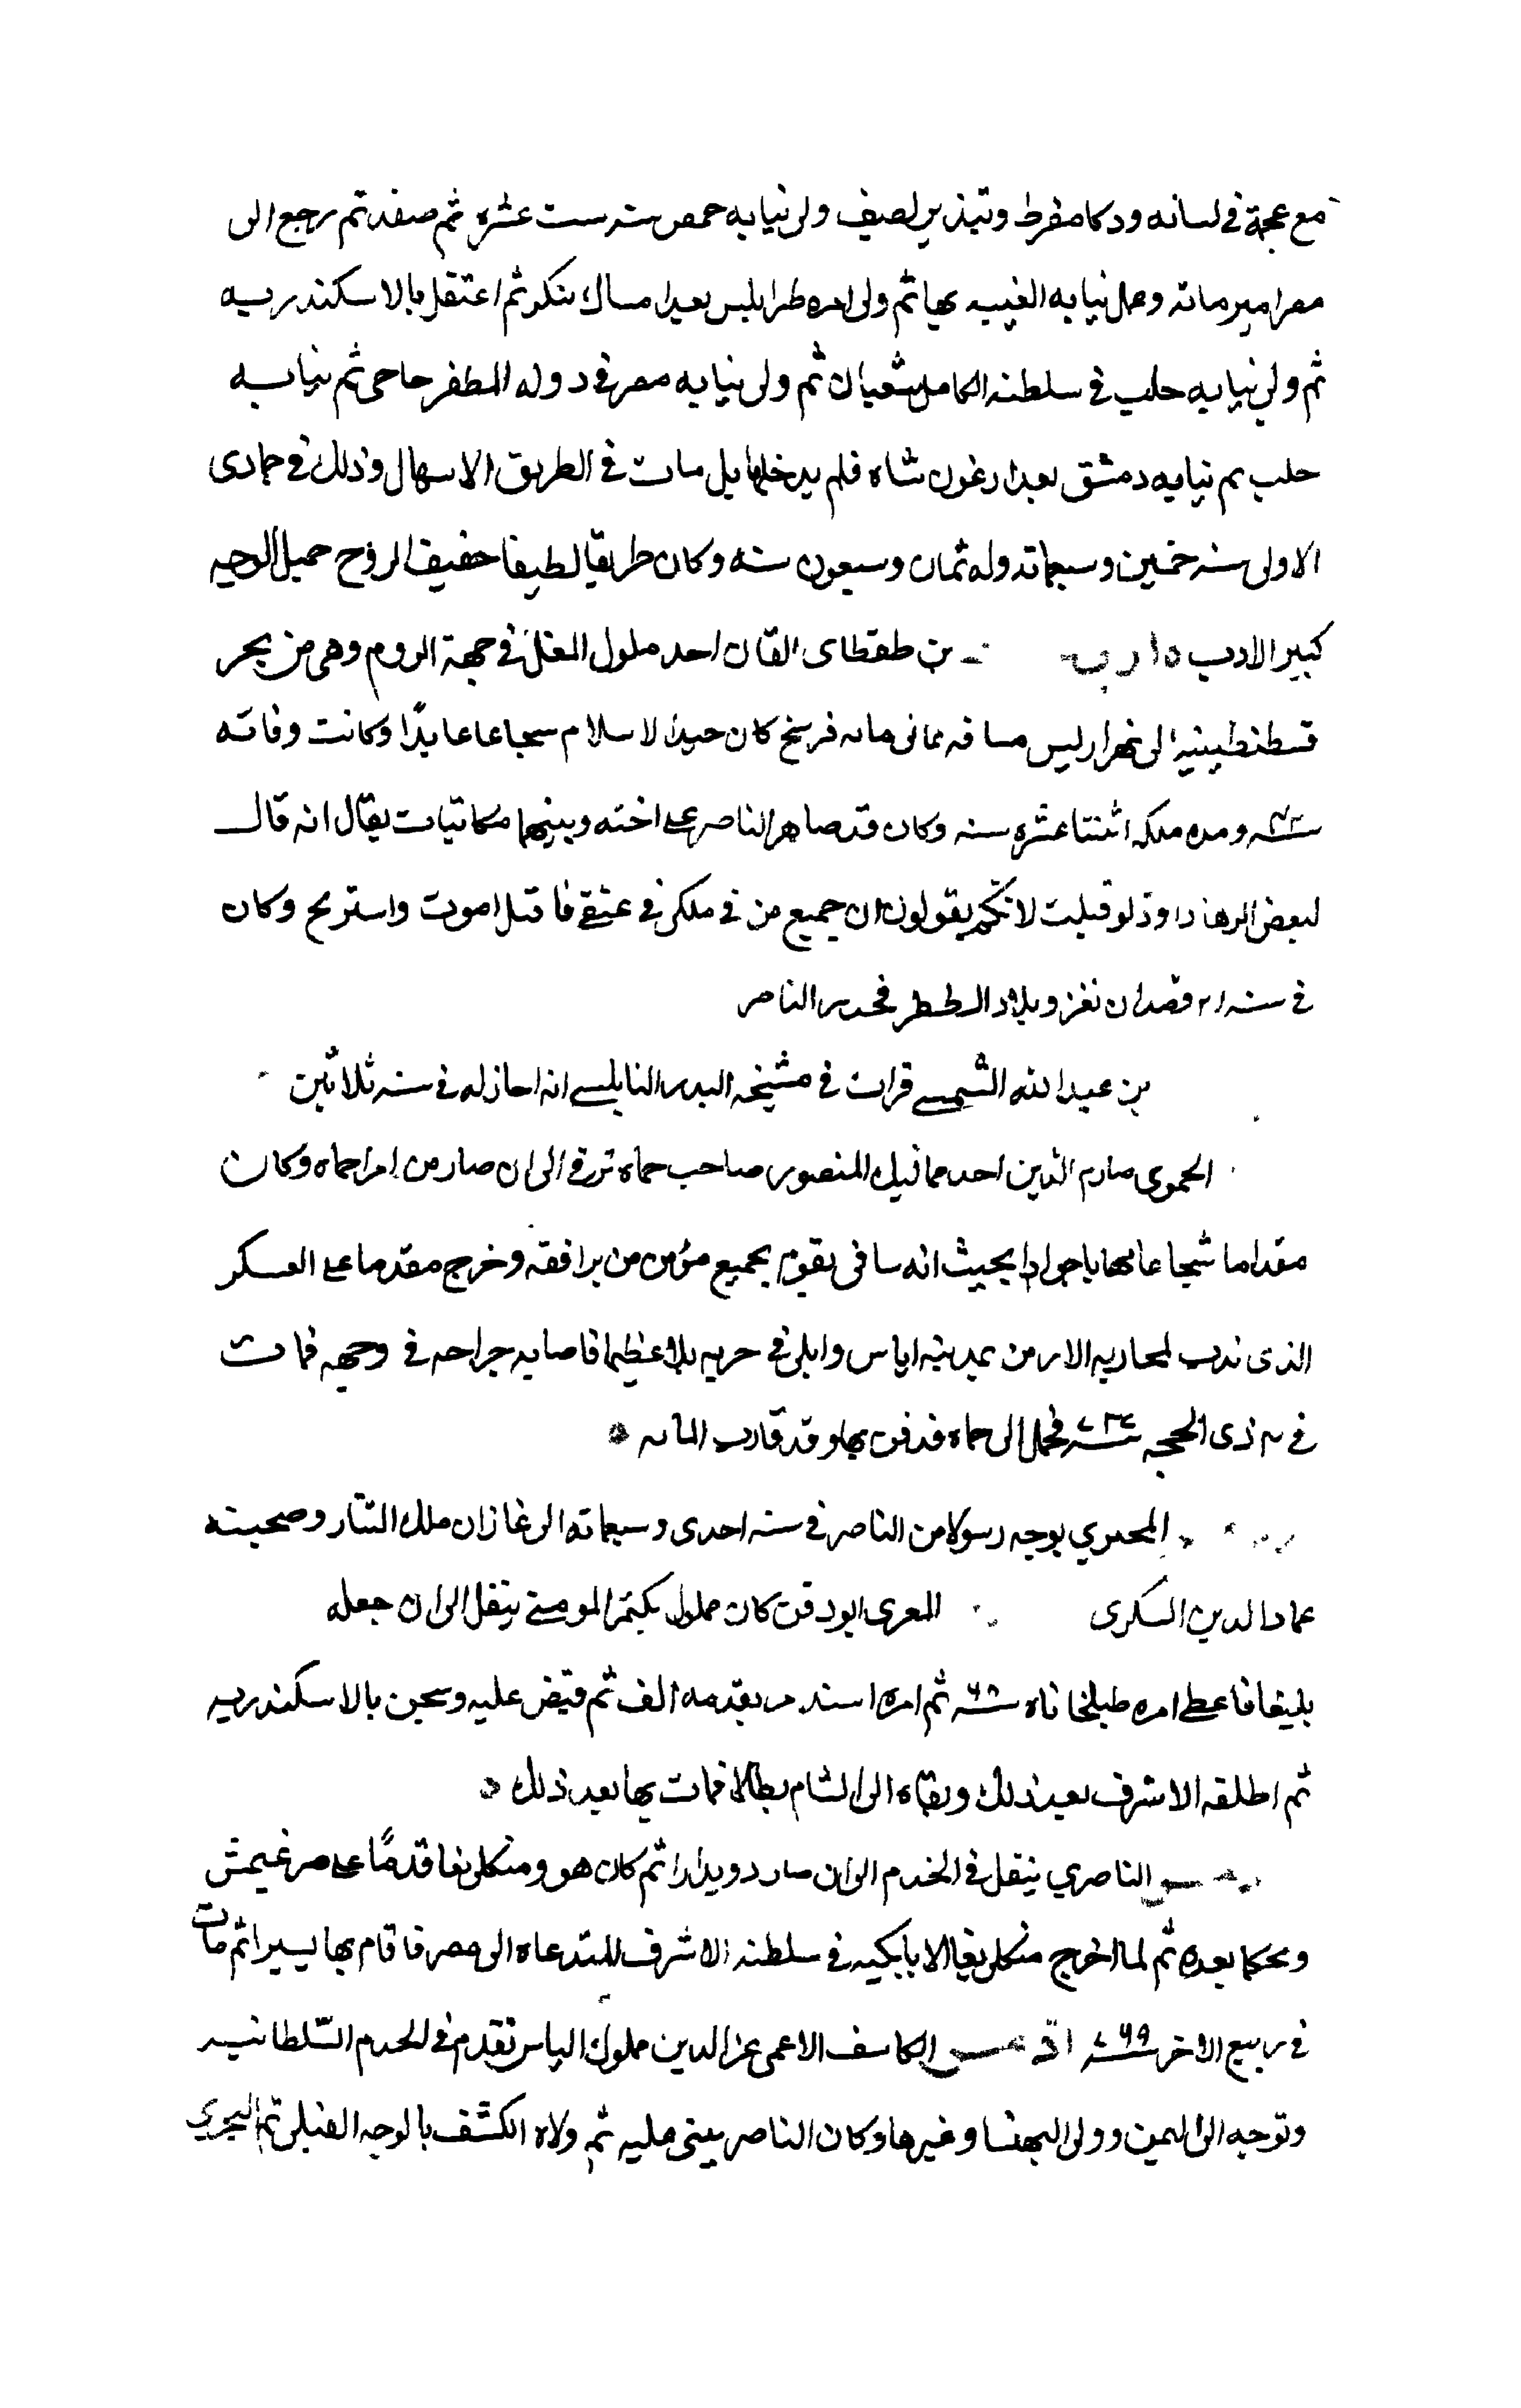 مع عجمة في لسانه ودكا مفرط وتبذير لصيف ولى نيابه حمص سنه ست عشره ثم صفد ثم رجع الى
مصر امير مائه وعمل نيابه الغيبه بها ثم ولى امره طرابلس بعد امساك تنكز ثم اعتقل بالاسكندريه
ثم ولي نيابه حلب في سلطنه الكامل شعبان ثم ولى نيابه مصر في دوله المظفر حاجي ثم نيابه
حلب ثم نيابه دمشق بعد ارغون شاه فلم يدخلها بل مات في الطريق الاسهال وذلك في جمادى
الاولى سنه خمسين وسبعمائه وله ثمان وسبعون سنه وكان ظريفا لطيفا خفيف الروح جميل الوجه
كبير الادب بن طقطاى القان احد ملوك المغل في جهة الروم وهى من بحر
قسطنطينية الى نهر ارليس مسافه ثمانى مائه فرسخ كان جيد الاسلام شجاعا عابدًا وكانت وفاته
سنه ومده ملكه اثنتا عشره سنه وكان قد صاهر الناصر على اخته وبينهما مكاتبات يقال انه قال
لبعض الرهاد اود لو قبلت لانكم يقولون ان جميع من في ملكى في عنقي فاقتل اموت واستريح وكان
في سنه قصد ان نغزو بلاد الططر فحدر الناصر
بن عبد الله الشمسي قرات في مشيخه البدر النابلسي انه اجاز له في سنه ثلاثين
الحموى صارم الدين احد مماليك المنصور صاحب حماه ترقى الى ان صار من امرا حماه وكان
مقداما شجاعا مهابا جوادا بحيث انه سافر يقوم بجميع مؤمن من يرافقه وخرج مقدما على العسكر
الذى ندب لمحاربه الارمن بمدينه اياس وابلى في حربه بلاء عظيما فاصابه جراحه في وجهه فمات
في ذى الحجه سنه ٧٣٤ فحمل الى حماه فدفن بها وقد قارب المائه
المجيري توجه رسولا من الناصر في سنه احدى وسبعمائه الى غازان ملك التتار وصحبته
عماد الدين السكرى المعرى ابو دقن كان مملوك بكتمر المومني تنقل الى ان جعله
يلبغا فاعطى امره طبلخاناه سنه ٧٦٨ ثم امره اسندمر بقدمه الف ثم قبض عليه وسجن بالاسكندريه
ثم اطلقه الاشرف بعد ذلك ونفاه الى الشام بطالا فمات بها بعد ذلك
الناصري تنقل في الخدم الى ان صار دويدارا ثم كان هو ومنكلى بغا قدمًا على صرغيتمش
وتحكما بعده ثم لما اخرج منكلى بغا الاتابكيه في سلطنه الاشرف استدعاه الى مصر فاقام بها يسيرا ثم مات
في ربيع الاخر سنه ٧٦٩ الكاشف الاعمى عز الدين مملوك الياس تقدم في الخدم السلطانيه
وتوجه الى اليمن وولى البهنسا وغيرها وكان الناصر يثنى عليه ثم ولاه الكشف بالوجه القبلى ثم البحري